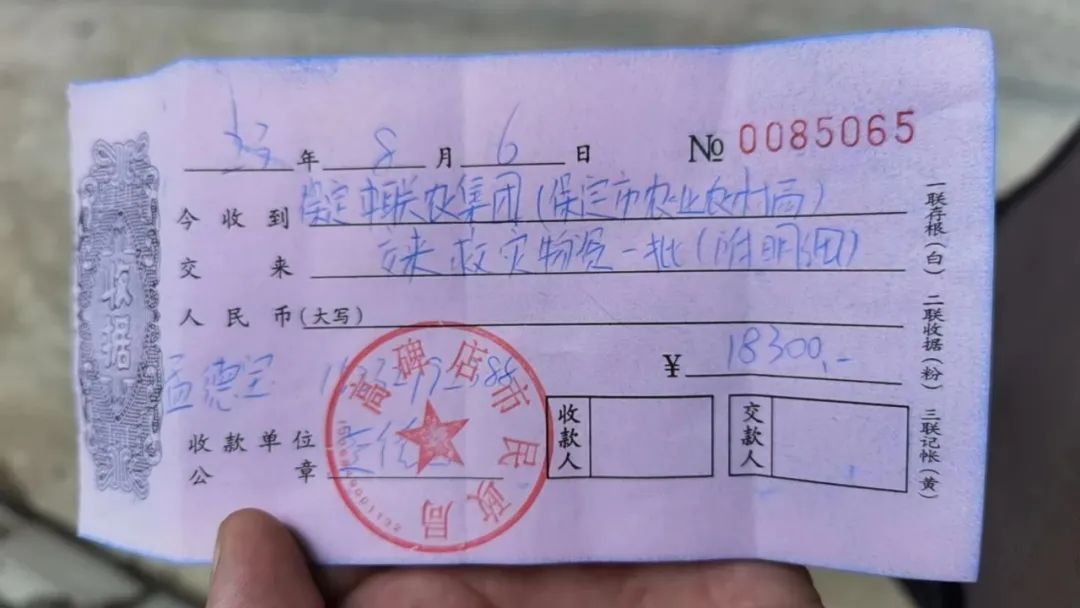 收据
年 8 月 6 日 № 0085065
今收到 保定市联农集团(保定市农业农村局)
交来 交来救灾物资一批(附明细)
人民币(大写)
¥ 18300,-
孟德宝
收款单位
公章
收款人
交款人
高碑店市民政局
一联存根(白) 二联收据(粉) 三联记帐(黄)